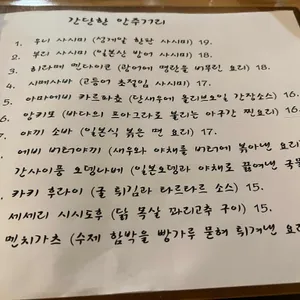 간단한 안주거리
1. 우니 사시미 (성게알 한판 사시미) 19.
2. 부리 사시미 (일본산 방어 사시미) 18.
3. 히라메 멘타이코 (광어에 명란을 버무린 요리) 18.
4. 시메사바 (고등어 초절임 사시미) 17.
5. 아마에비 카르파쵸 (단새우에 올리브오일 간장소스) 16.
6. 앙키모 (바다의 푸아그라로 불리는 아구간 찐요리) 16.
야끼 소바 (일본식 볶은 면 요리) 17.
에비 버터야끼 (새우와 야채를 버터에 볶아낸 요리)
간사이풍 오뎅나베 (일본오뎅과 야채로 끓여낸 국물
카키 후라이 (굴 튀김과 타르타르 소스) 15.
세세리 시시도후 (닭 목살 꽈리고추 구이) 15.
멘치가츠 (수제 함박을 빵가루 묻혀 튀겨낸 요리